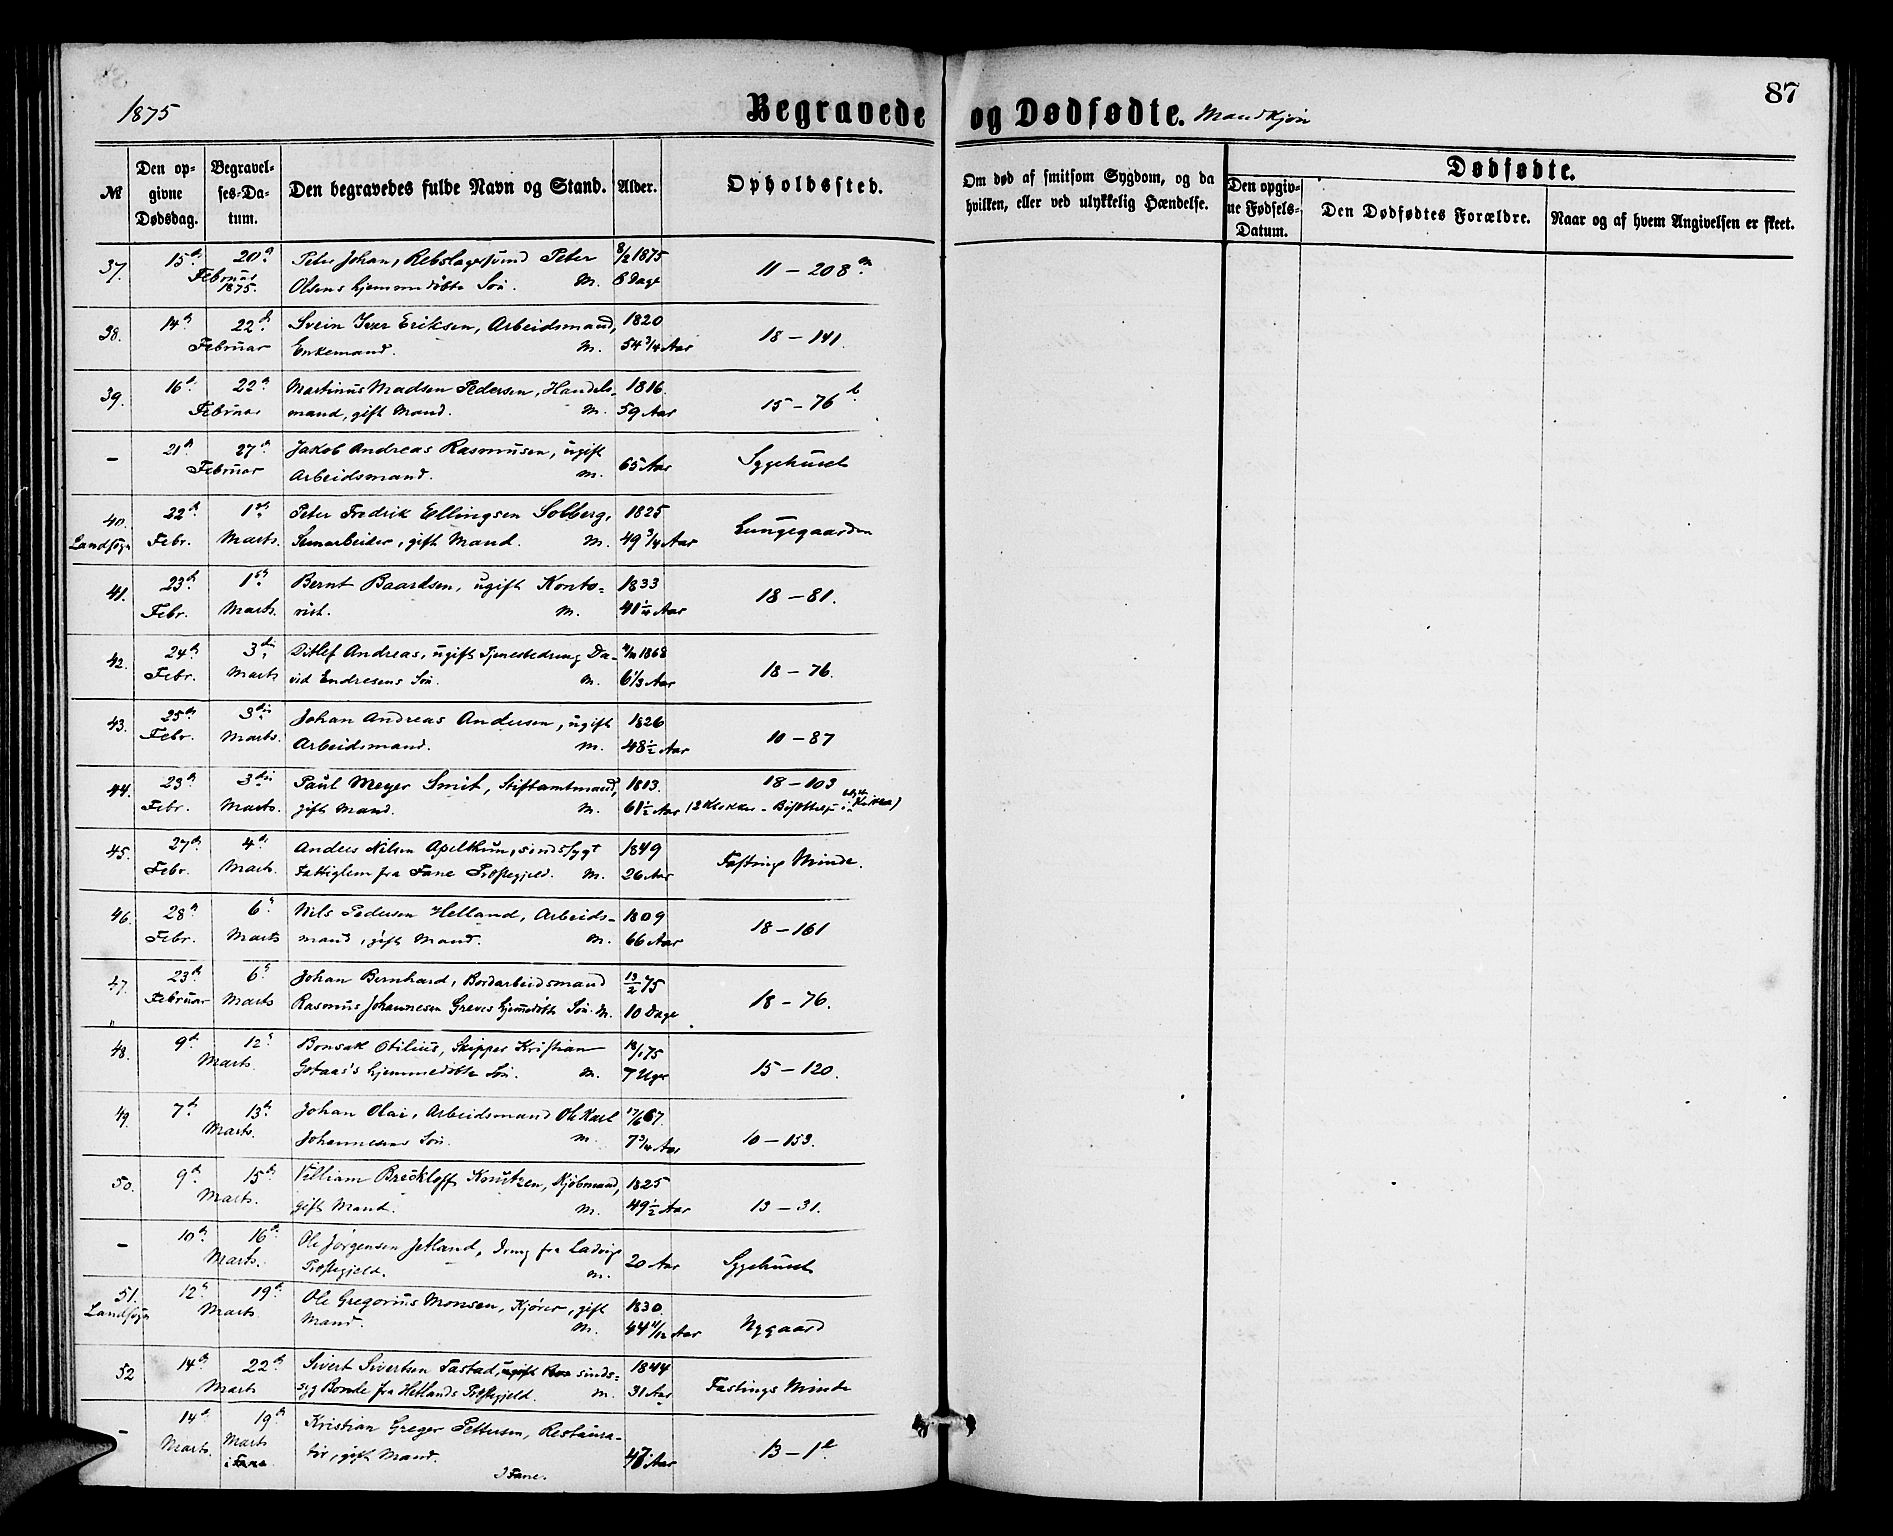 1875
Begravede og Dødfødte. Mandkjøn
87
№
Den op-
givne
Dødsdag.
Begravel-
ses-Da-
tum.
Den begravedes fulde Navn og Stand.
Alder.
Opholdssted.
Om død af smitsom Sygdom, og da
hvilken, eller ved ulykkelig Hændelse.
Dødfødte.
Den opgiv-
ne Fødsels-
Datum.
Den Dødfødtes Forældre.
Naar og af hvem Angivelsen er skeet.
37. 15d 20d Peter Johan, Rebslagersvend Peter 8/2 1875 11 – 208a
Februar 1875. Olsens hjemmedøbte Søn. M. 8 Dage
38. 14d 22d Svein Iver Eriksen, Arbeidsmand, 1820 18 – 141.
Februar Enkemand. M. 54 3/4 Aar
39. 16d 22d Martinus Madsen Pedersen, Handels- 1816. 15 – 76b
Februar mand, gift Mand. M. 59 Aar
– 21d 27d Jakob Andreas Rasmusen, ugift 65 Aar Sygehuset
Februar Arbeidsmand. M.
40. 22d 1ste Peter Fredrik Ellingsen Solberg, 1825 Lungegaarden
Landsogn Febr. Marts. gift Mand. M. 49 3/4 Aar
41. 23d 1ste Bernt Baardsen, ugift Konto- 1833 18 – 81.
Febr. Marts. rist. M. 41 1/4 Aar
42. 24d 3die Ditlef Andreas, ugift Tjenestedreng Da- 1868 18 – 76.
Febr. Marts vid Endresens Søn. M. 6 1/3 Aar
43. 25d 3die Johan Andreas Andersen, ugift 1826 10 – 87
Febr. Marts. Arbeidsmand. M. 48 1/2 Aar
44. 23d 3die Paul Meyer Smit, Stiftamtmand, 1813. 18 – 103
Febr. Marts. gift Mand. M. 61 1/2 Aar (2 Klokker –
45. 27d 4de Anders Nilsen Apelthun, sindssygt 1849 Fastings Minde.
Febr. Marts. Fattiglem fra Fane Præstegjeld. M. 26 Aar
46. 28d 6te Nils Pedersen Helland, Arbeids- 1809 18 – 161
Febr. Marts mand, gift Mand. M. 66 Aar
47. 23d 6te Johan Bernhard, Bordarbeidsmand 13/2 75 18 – 76.
Februar Marts Rasmus Johannesen Greves hjemmedøbte Søn. M. 10 Dage
48. 9d 12te Bonsak Otilius, Skipper Kristian 18/1 75 15 – 120.
Marts. Gotaas's hjemmedøbte Søn. M. 7 Uger
49. 7d 13d Johan Olai, Arbeidsmand Ole Karl 17/6 67. 10 – 153.
Marts. Johannesens Søn. M. 7 3/4 Aar
50. 9d 15d Villiam Knutzen, Kjøbmand, 1825 13 – 31.
Marts. gift Mand. M. 49 1/2 Aar
– 10d 16d Ole Jørgensen Jetland, Dreng fra Ladvigs 20 Aar Sygehuset
Marts. Præstegjeld. M.
51. 12te 19d Ole Gregorius Monsen, Kjører, gift 1830. Nygaard
Landsogn Marts Mand. M. 44 11/12 Aar
52 14d 22d Sivert Sivertsen Tastad, sinds- 1844 Fastings Minde
Marts syg Bonde fra Hetlands Præstegjeld. M. 31 Aar
– 14d 19d Kristian Greger Pettersen, Restaura- 13 – 1e.
Marts. Marts i Fane tør, gift Mand. 47 Aar
I Fane.